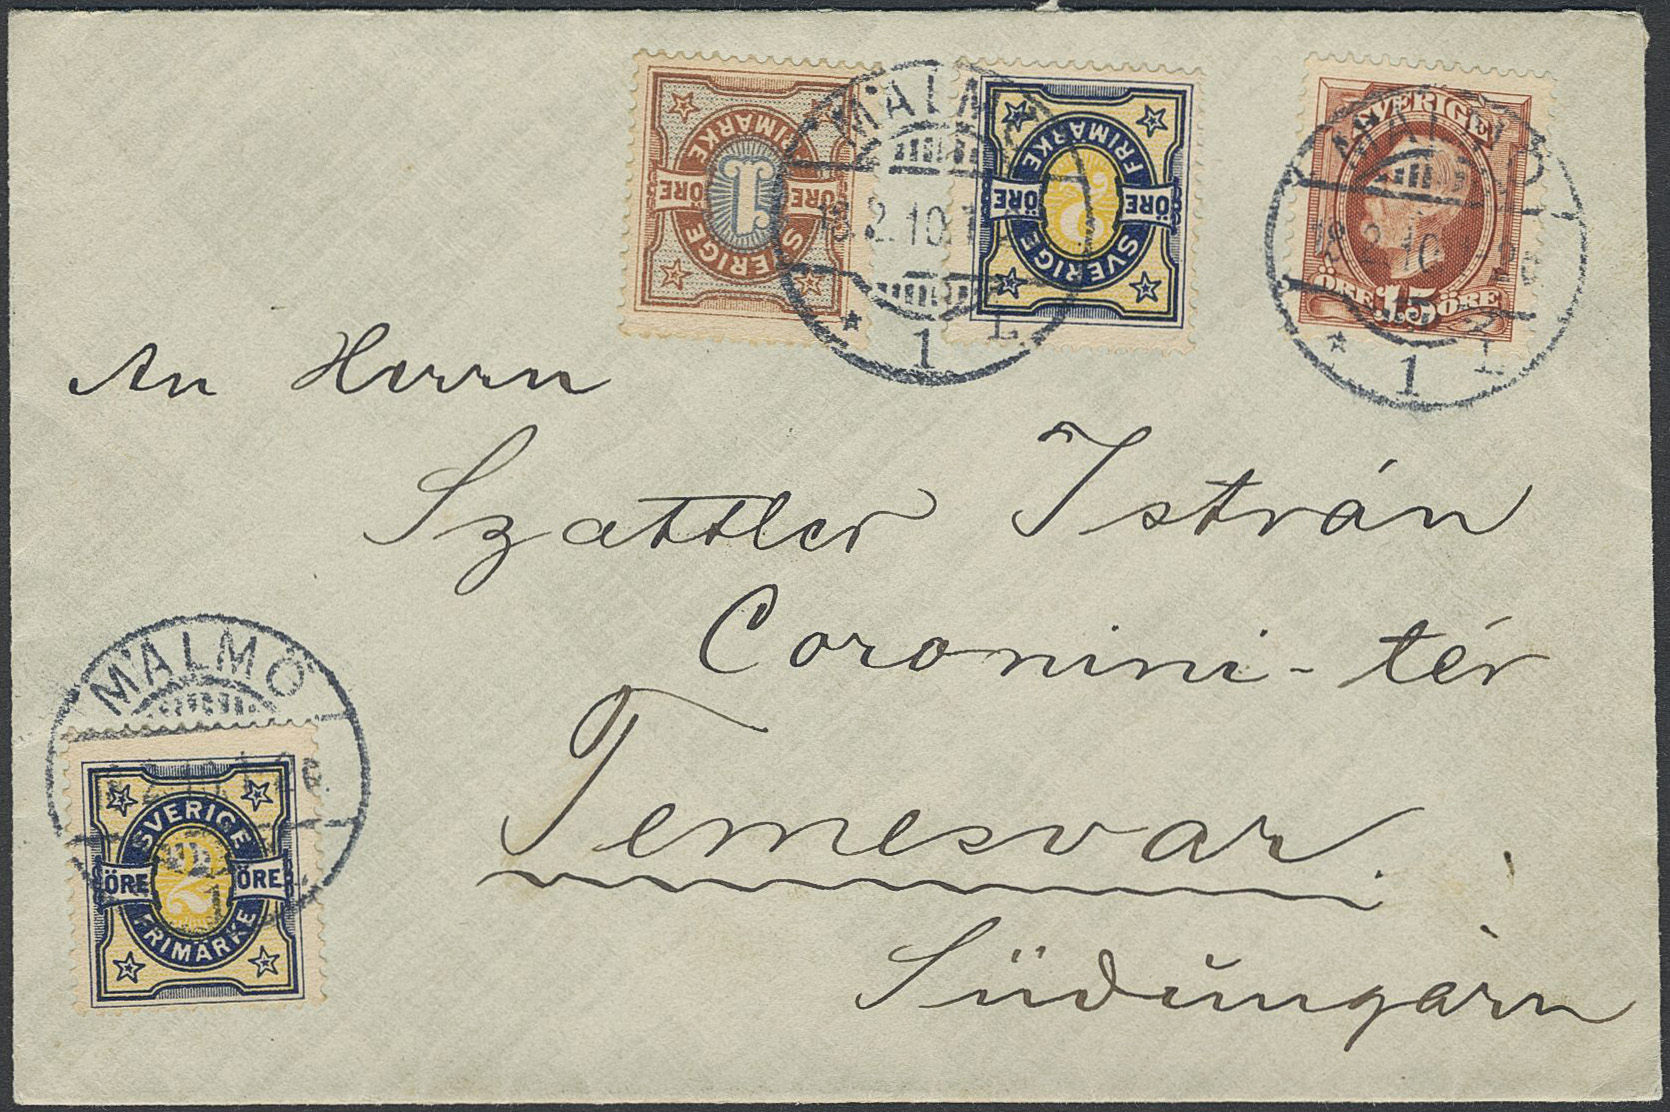 SVERIGE
FRIMÄRKE
1
ÖRE ÖRE
SVERIGE
FRIMÄRKE
2
ÖRE ÖRE
SVERIGE
ÖRE 15 ÖRE
MALMÖ
18.2.10.
1
MALMÖ
18.2.10
1
An Herrn
Szattler István
Coronini-tér
Temesvar.
Südungarn
MALMÖ
1
SVERIGE
ÖRE 2 ÖRE
FRIMÄRKE